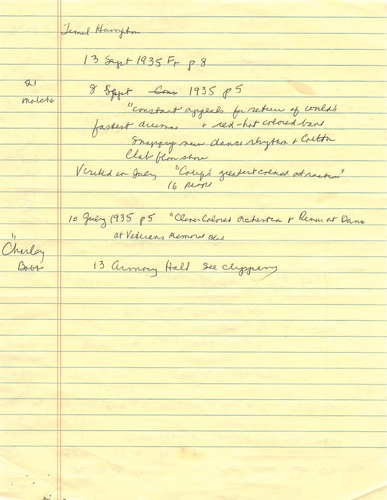 Hampton
13 Sept 1935 Fr p 8
8 Sept 1935 p 5
"constant appeals for return of world's
fastest + red-hot colored band
Snappy new dance rhythm + Cotton
Club floor show
Visited in July "greatest colored attraction"
16 people
10 July 1935 p 5 "Clever Colored Orchestra & Revue at Dance
at Veterans Memorial
" Charley
13 Armory Hall See clipping